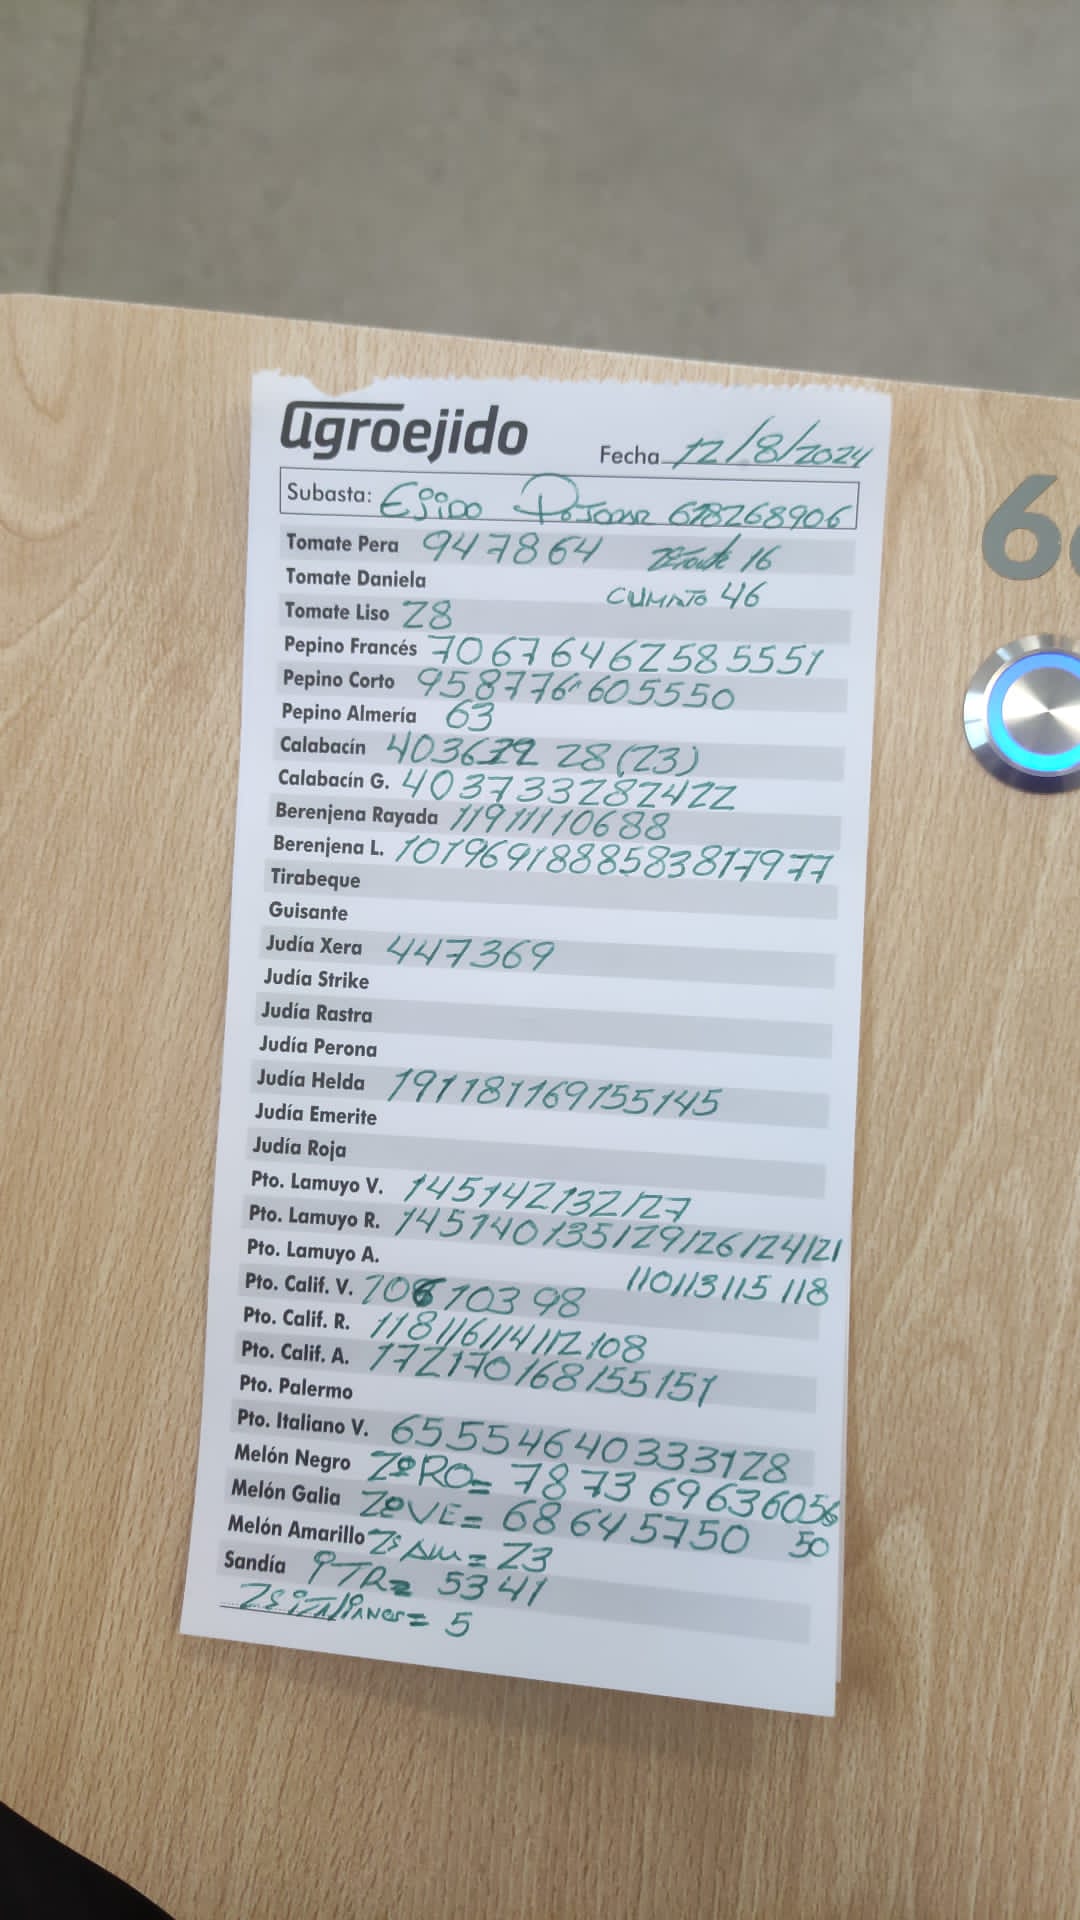 agroejido
Fecha 12/8/2024
Subasta: Ejido 618268906
Tomate Pera 94 78 64 16
Tomate Daniela CUMATO 46
Tomate Liso 28
Pepino Francés 70 67 64 62 58 55 51
Pepino Corto 95 87 76 60 55 50
Pepino Almería 63
Calabacín 40 36 32 28 (23)
Calabacín G. 40 37 33 28 24 22
Berenjena Rayada 119 111 106 88
Berenjena L. 101 96 91 88 85 83 81 79 77
Tirabeque
Guisante
Judía Xera 447 369
Judía Strike
Judía Rastra
Judía Perona
Judía Helda 191 181 169 155 145
Judía Emerite
Judía Roja
Pto. Lamuyo V. 145 142 132 127
Pto. Lamuyo R. 145 140 135 129 126 124 121
Pto. Lamuyo A. 110 113 115 118
Pto. Calif. V. 106 103 98
Pto. Calif. R. 118 116 114 112 108
Pto. Calif. A. 172 170 168 155 151
Pto. Palermo
Pto. Italiano V. 65 55 46 40 33 31 28
Melón Negro 2ºRO= 78 73 69 63 60 56
Melón Galia 2ºVE= 68 64 57 50 50
Melón Amarillo 2º AM= 23
Sandía PTR= 53 41
2º iTAliANos= 5
6